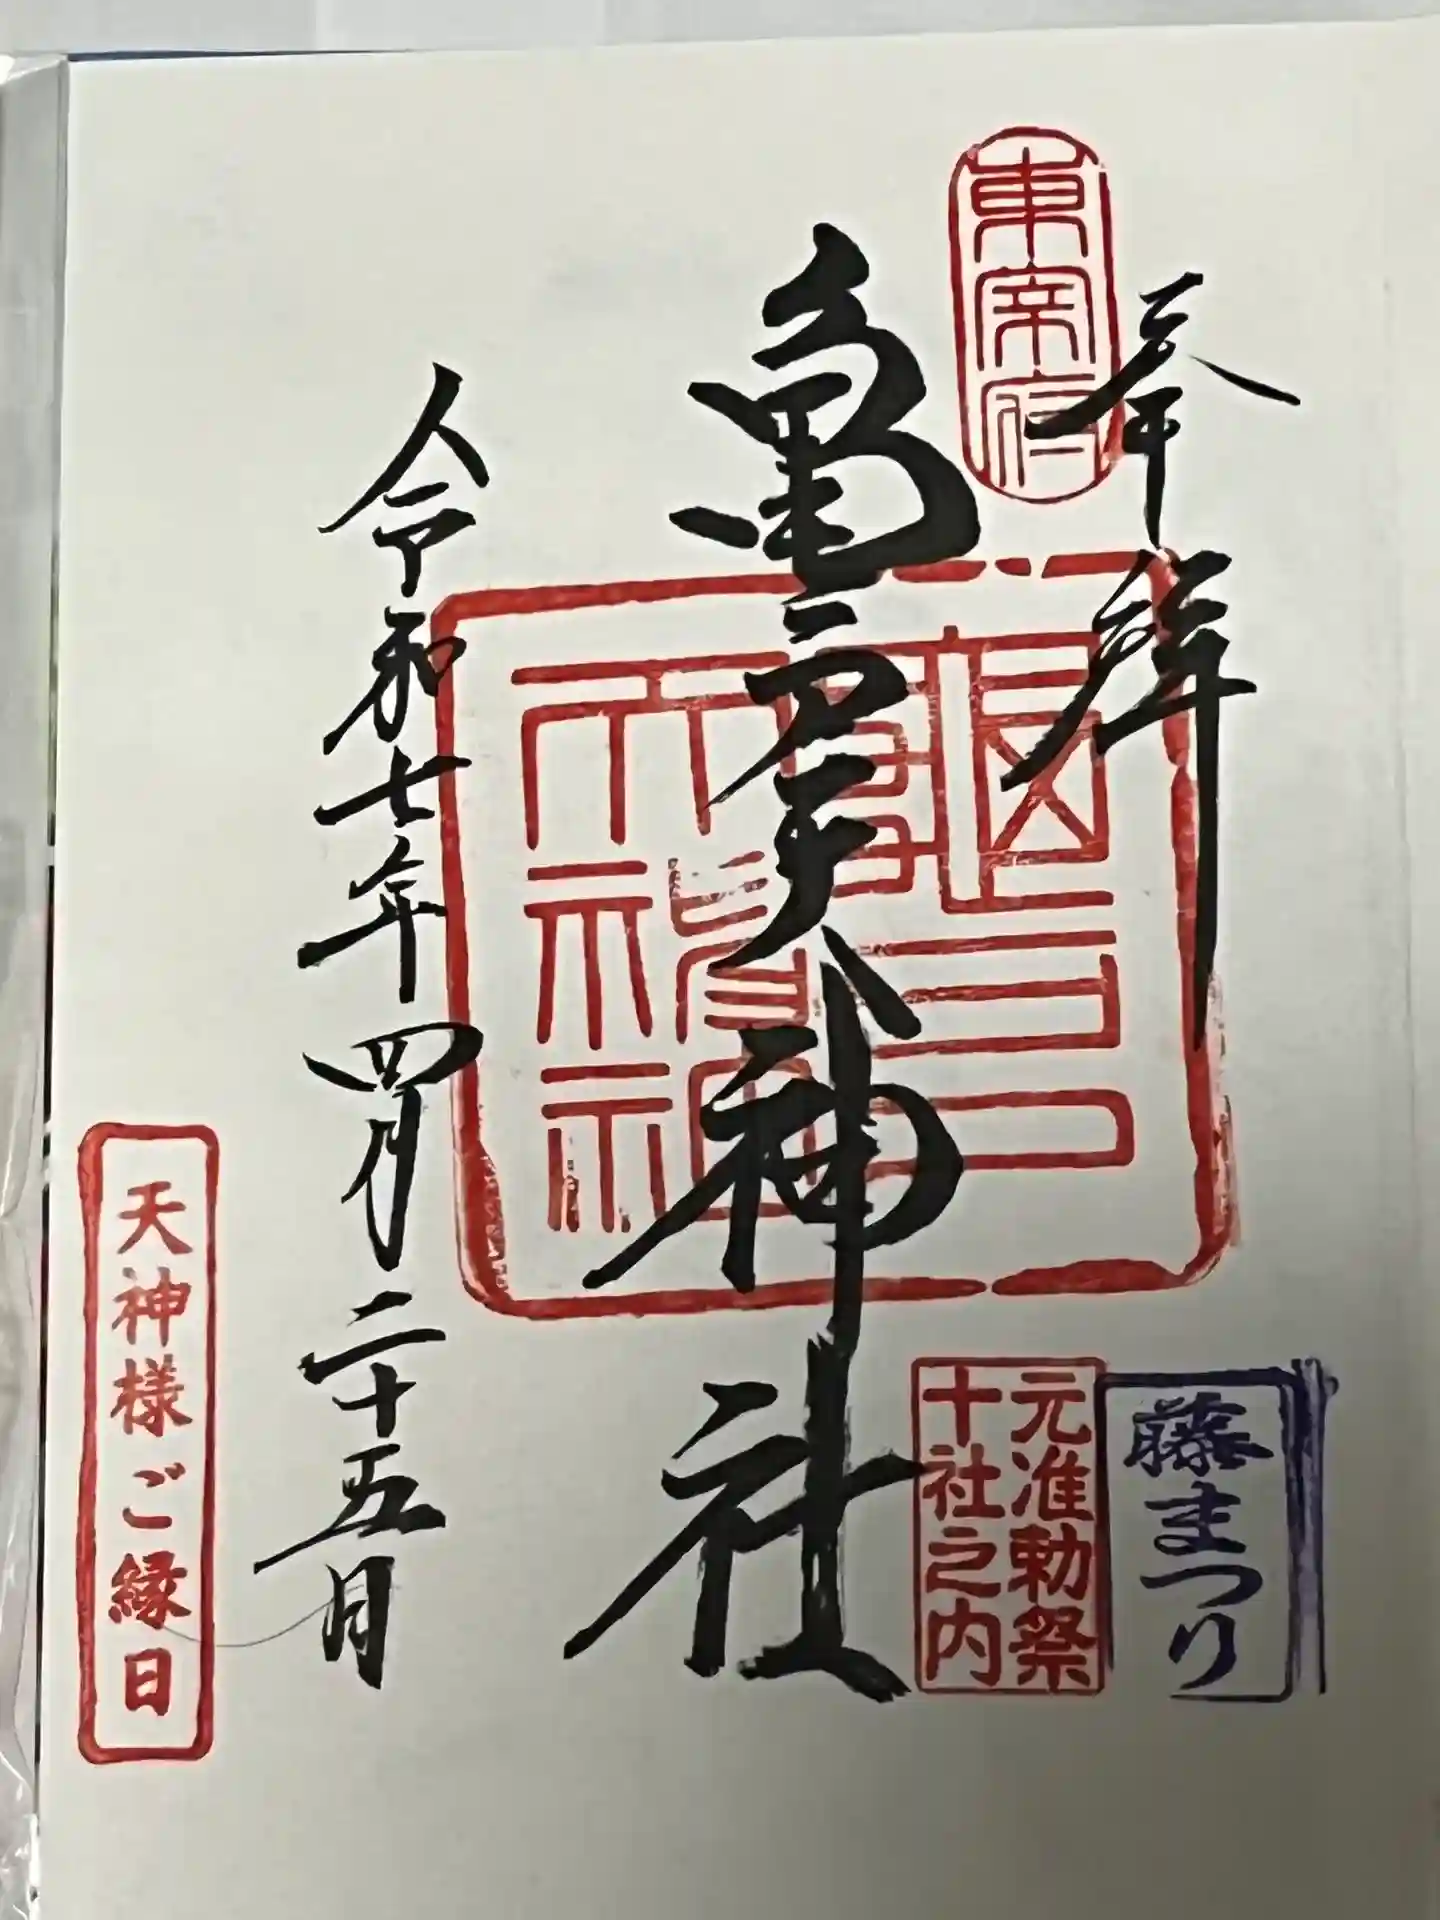 奉拝
東宰府
亀戸天神社
元准勅祭
十社之内
藤まつり
令和七年四月二十五日
天神様ご縁日